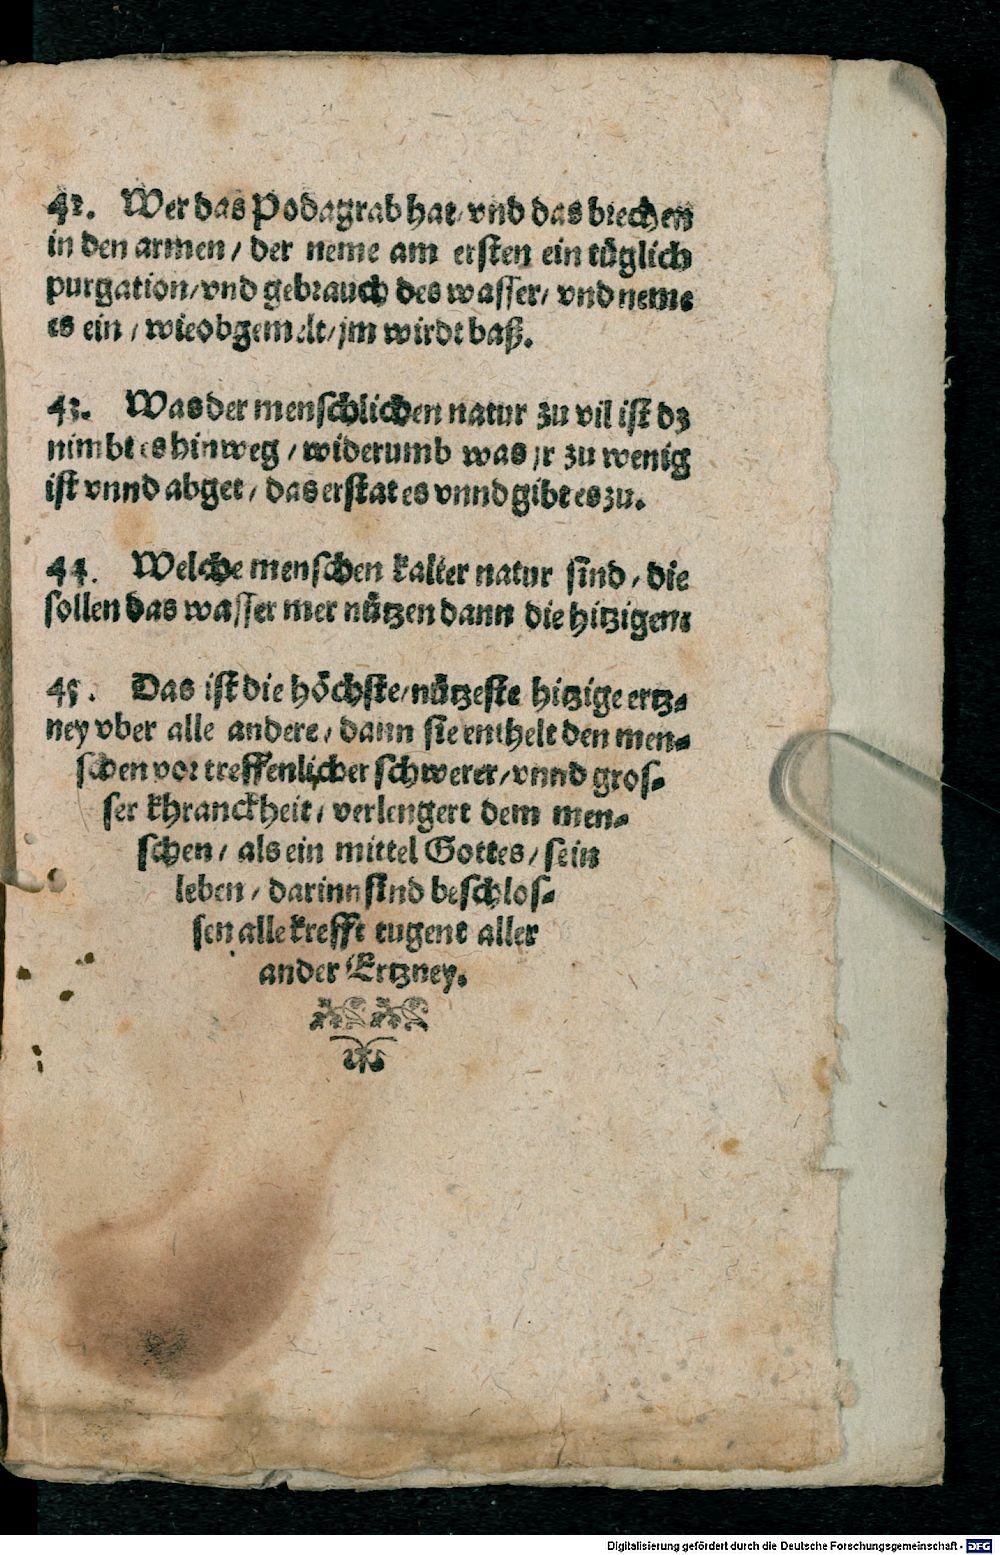 42. Wer das Podagrab hat/ vnd das brechen
in den armen / der neme am ersten ein täglich
purgation/ vnd gebrauch des wasser/ vnd neme
es ein / wie obgemelt/ jm wirdt baß.
43. Was der menschlichen natur zu vil ist dz
nimbt es hinweg / widerumb was jr zu wenig
ist vnnd abget / das erstat es vnnd gibt es zu.
44. Welche menschen kalter natur sind / die
sollen das wasser mer nützen dann die hitzigen:
45. Das ist die höchste/ nützeste hitzige ertz-
ney vber alle andere / dann sie enthelt den men-
schen vor treffenlicher schwerer/ vnnd gros-
ser khranckheit / verlengert dem men-
schen / als ein mittel Gottes / sein
leben / darinn sind beschlos-
sen alle krefft tugent aller
ander Ertzney.
Digitalisierung gefördert durch die Deutsche Forschungsgemeinschaft - DFG